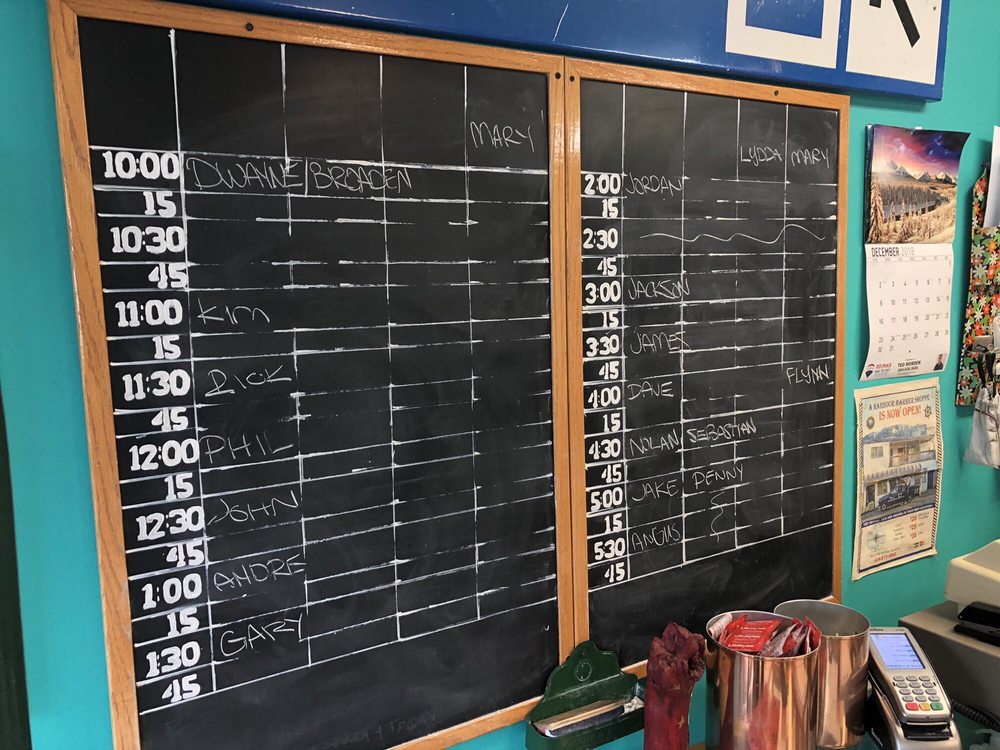 MARY
10:00 DWAYNE BROADEN
15
10:30
45
11:00 KIM
15
11:30 RICK
45
12:00 PHIL
15
12:30 JOHN
45
1:00 ANDRE
15
1:30 GARY
45
LYDDA MARY
2:00 JORDAN
15
2:30
45
3:00 JACKSON
15
3:30 JAMES
45 FLYNN
4:00 DAVE
15
4:30 NOLAN SEBASTIAN
45
5:00 JAKE PENNY
15
5:30 ANGUS
45
DECEMBER 2018
RE/MAX
TED
A HARBOUR BARBER SHOPPE
IS NOW OPEN!